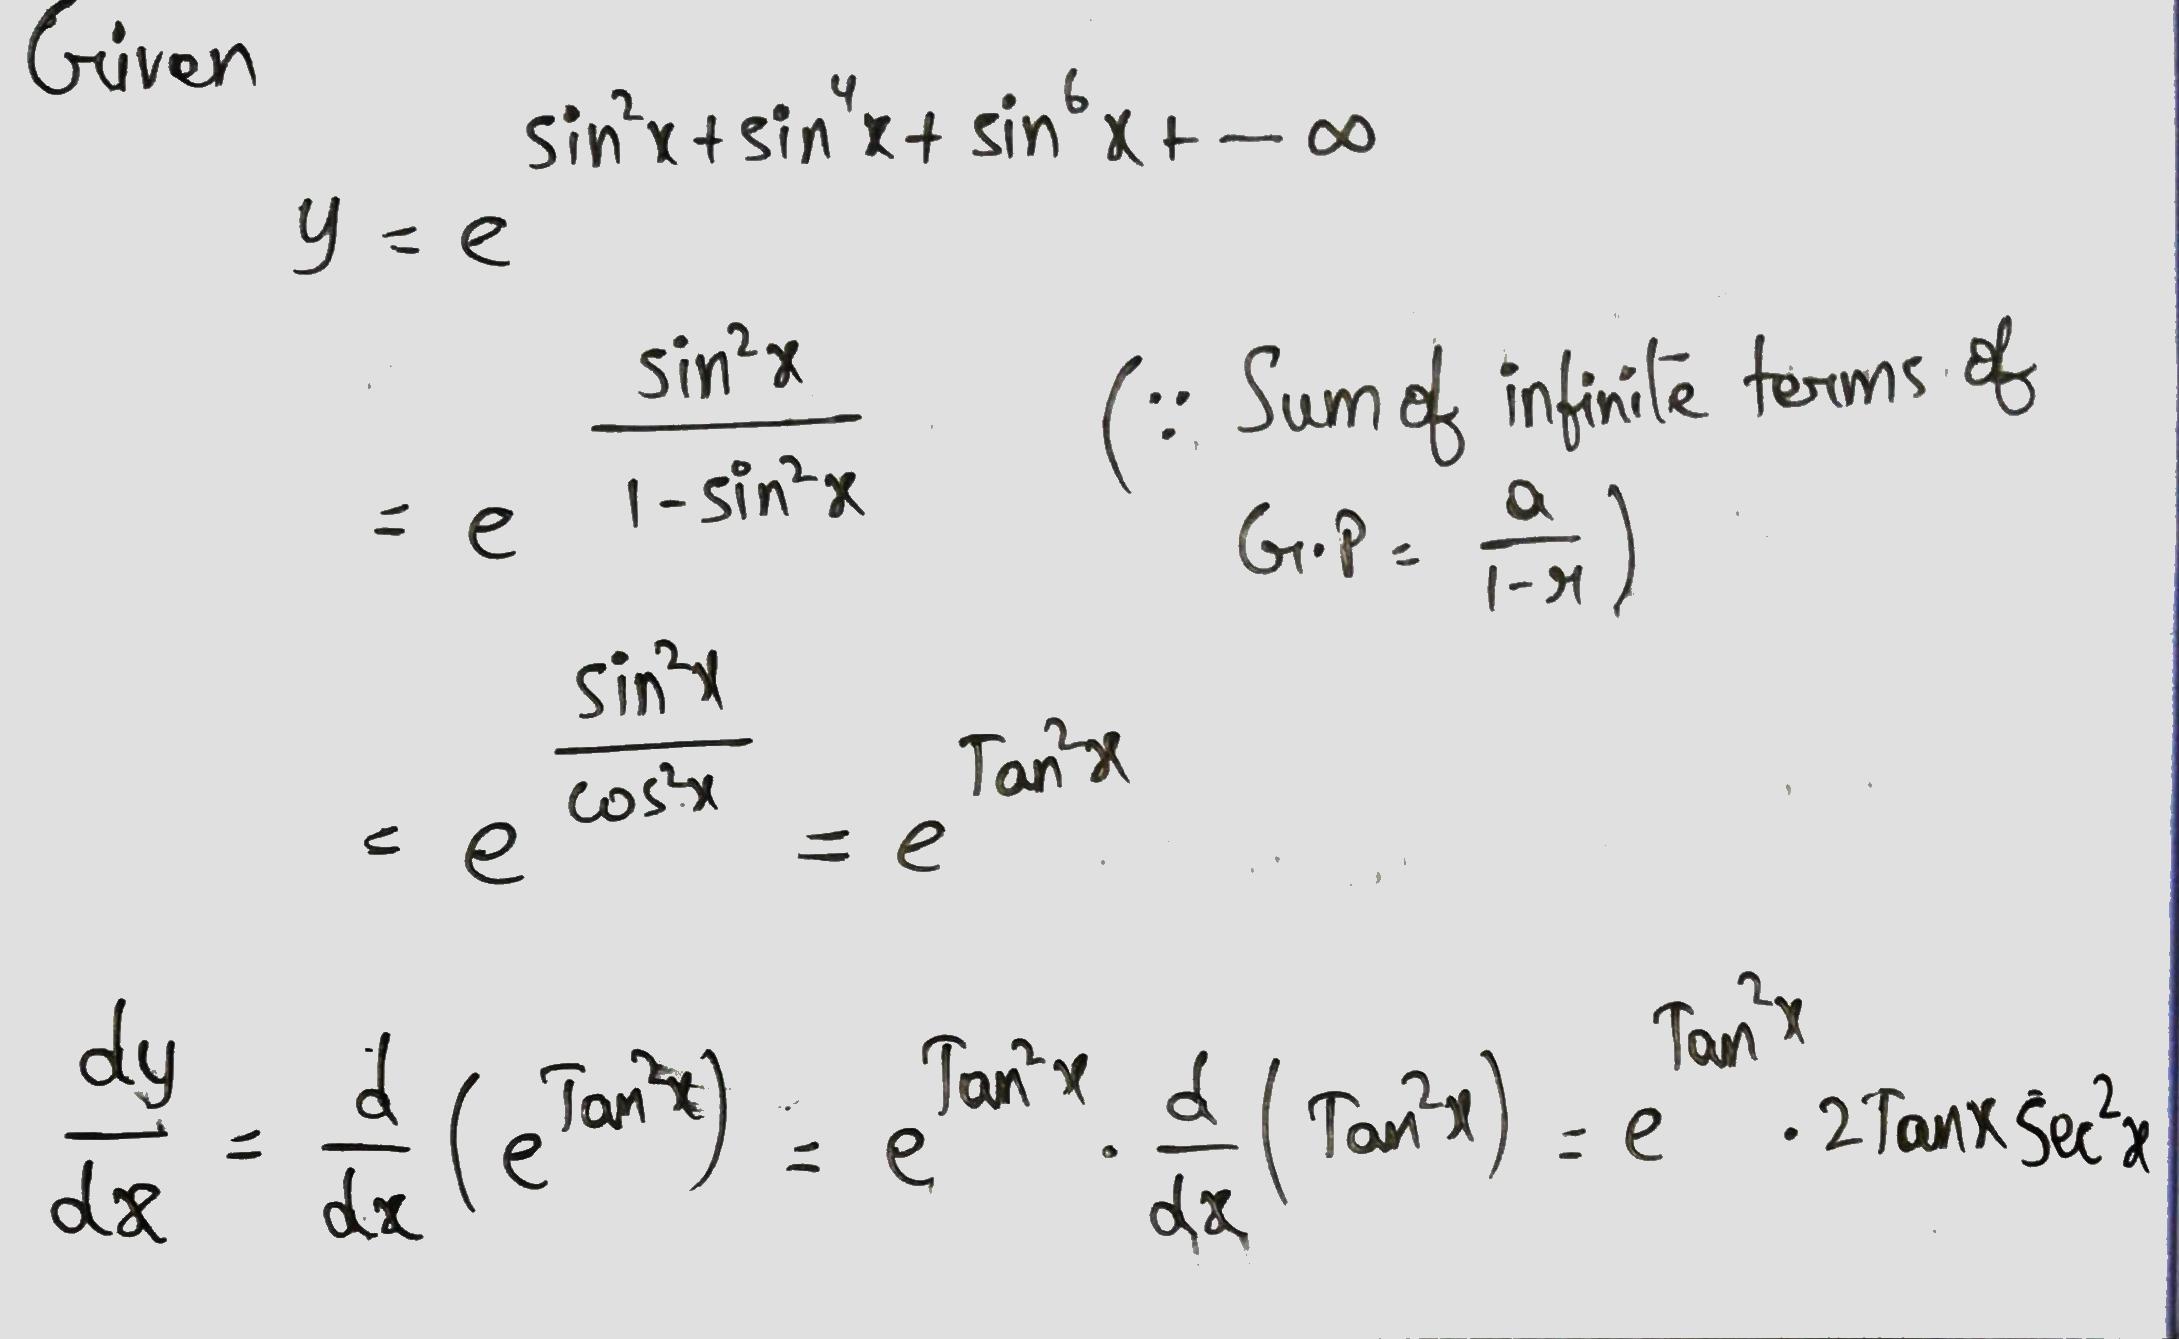 Given
y = e^(sin²x + sin⁴x + sin⁶x + — ∞)
= e^(sin²x / (1 - sin²x)) (∵ Sum of infinite terms of
G.P = a / (1-r))
= e^(sin²x / cos²x) = e^(Tan²x)
dy/dx = d/dx (e^(Tan²x)) = e^(Tan²x) · d/dx (Tan²x) = e^(Tan²x) · 2 Tanx Sec²x